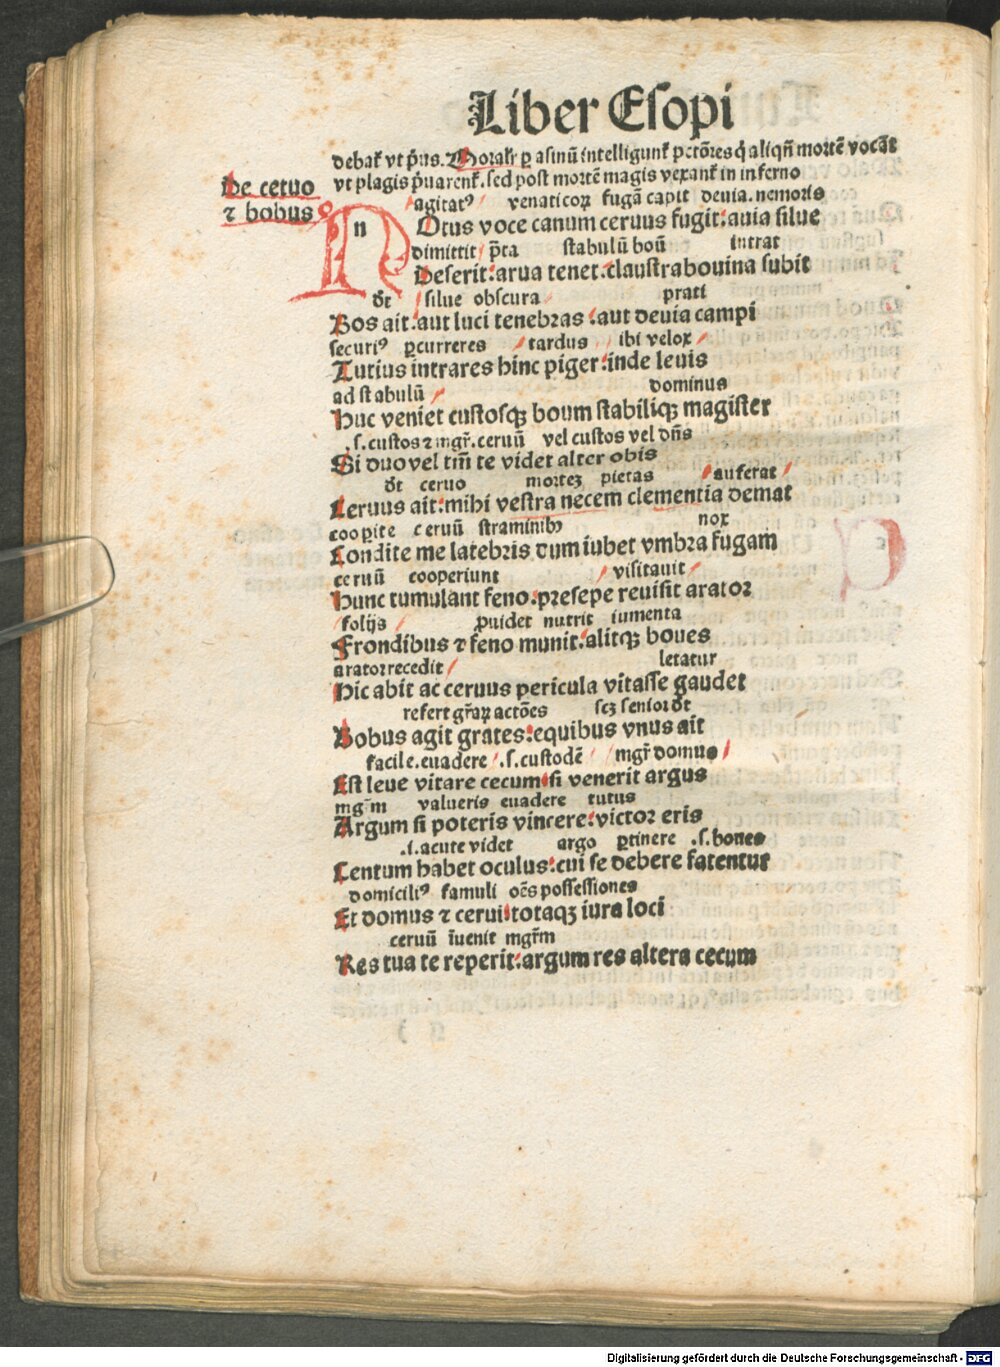 Liber Esopi
debat᷒ vt p̄us. Moral᷒r ꝑ asinū intelligunt᷒ pctōres q̇ aliqn̄ mortē vocāt
vt plagis p̄uarent᷒. sed post mortē magis vexant᷒ in inferno
De ceruo
⁊ bobus
agitatꝰ venaticoꝝ fugā capit deuia. nemoris
n Otus voce canum ceruus fugit: auia silue
dimittit p̄ta stabulū boū intrat
Deserit: arua tenet. claustra bouina subit
dt̄ silue obscura prati
Bos ait. aut luci tenebras. aut deuia campi
securiꝰ ꝑcurreres tardus ibi velox
Tutius intrares hinc piger: inde leuis
ad stabulū dominus
Huc veniet custosqꝫ boum stabiliqꝫ magister
.s. custos ⁊ mgr̄. ceruū vel custos vel dn̄s
Si duo vel tm̄ te videt alter obis
dt̄ ceruo morteꝫ pietas auferat
Ceruus ait: mihi vestra necem clementia demat
cooꝑite ceruū straminibꝰ nox
Condite me latebris dum iubet vmbra fugam
ceruū cooperiunt visitauit
Hunc tumulant feno. presepe reuisit arator
folijs ꝓuidet nutrit iumenta
Frondibus ⁊ feno munit: alitqꝫ boues
arator recedit letatur
Hic abit ac ceruus pericula vitasse gaudet
refert gr̄aꝝ actōes scꝫ senior dt̄
Bobus agit grates: equibus vnus ait
facile. euadere .s. custodē mgr̄ domus
Est leue vitare cecum si venerit argus
mgr̄m valueris euadere tutus
Argum si poteris vincere: victor eris
.i. acute videt argo ꝑtinere .s. boues
Centum habet oculus: cui se debere fatentur
domiciliꝰ famuli oēs possessiones
Et domus ⁊ cerui totaqꝫ iura loci
ceruū īuenit mgr̄m
Res tua te reperit: argum res altera cecum
Digitalisierung gefördert durch die Deutsche Forschungsgemeinschaft - DFG